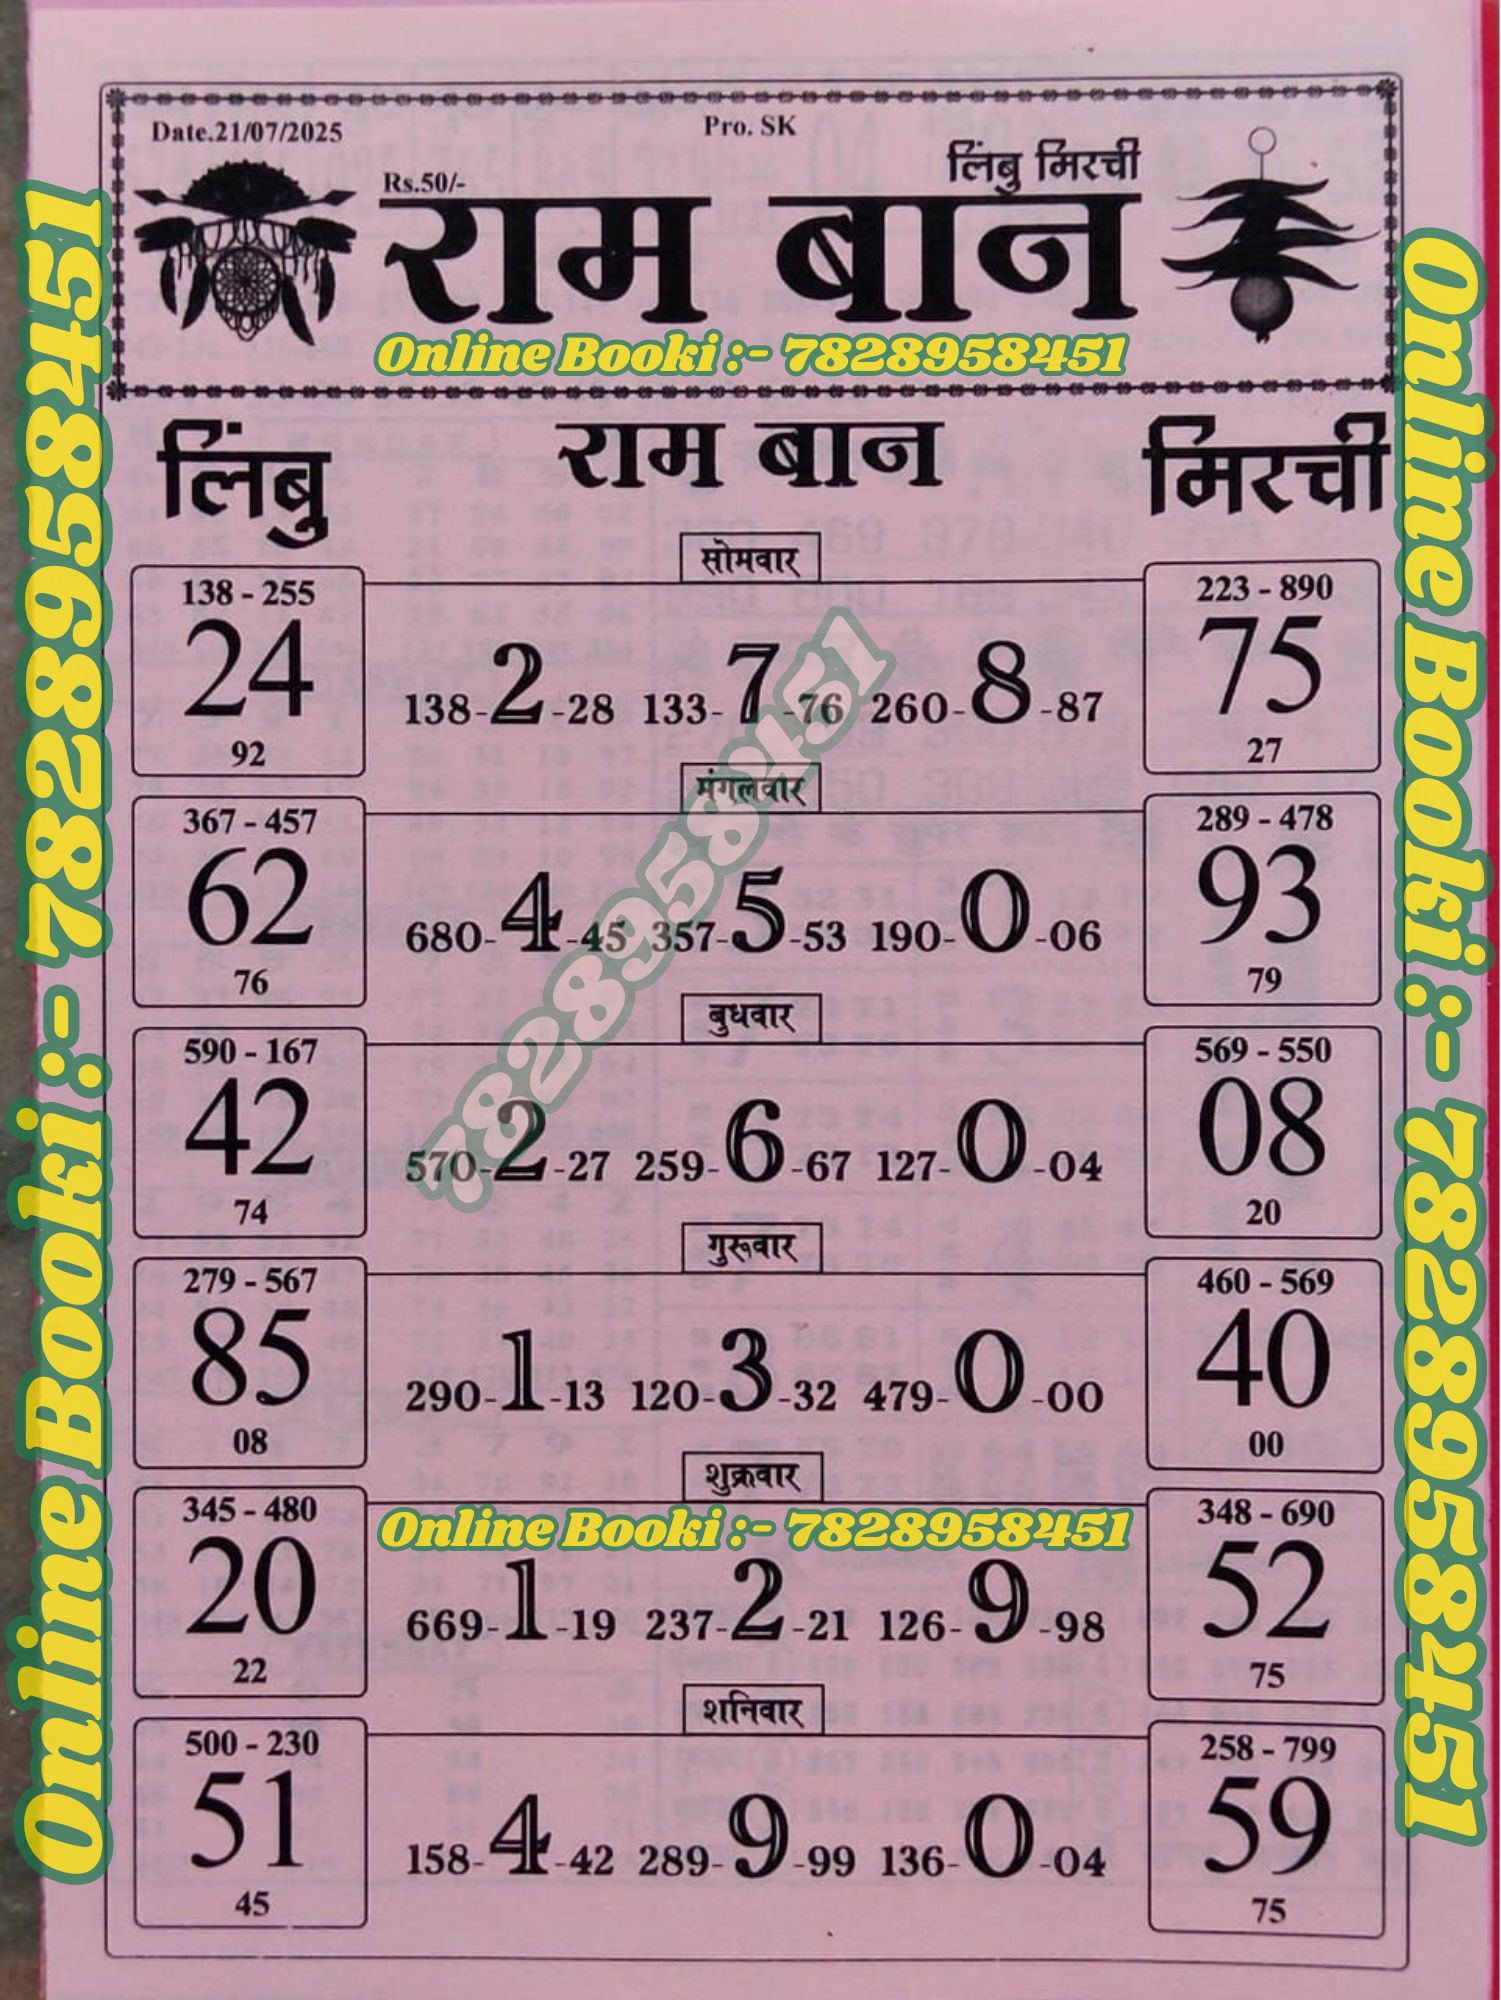 Date.21/07/2025
Pro. SK
लिंबु मिरची
Rs.50/-
राम बान
Online Booki :- 7828958451
लिंबु
राम बान
मिरची
सोमवार
138 - 255
24
92
138-2-28 133-7-76 260-8-87
223 - 890
75
27
मंगलवार
367 - 457
62
76
680-4-45 357-5-53 190-0-06
289 - 478
93
79
बुधवार
590 - 167
42
74
570-2-27 259-6-67 127-0-04
569 - 550
08
20
गुरूवार
279 - 567
85
08
290-1-13 120-3-32 479-0-00
460 - 569
40
00
शुक्रवार
Online Booki :- 7828958451
345 - 480
20
22
669-1-19 237-2-21 126-9-98
348 - 690
52
75
शनिवार
500 - 230
51
45
158-4-42 289-9-99 136-0-04
258 - 799
59
75
7828958451
Online Booki :- 7828958451
Online Booki :- 7828958451